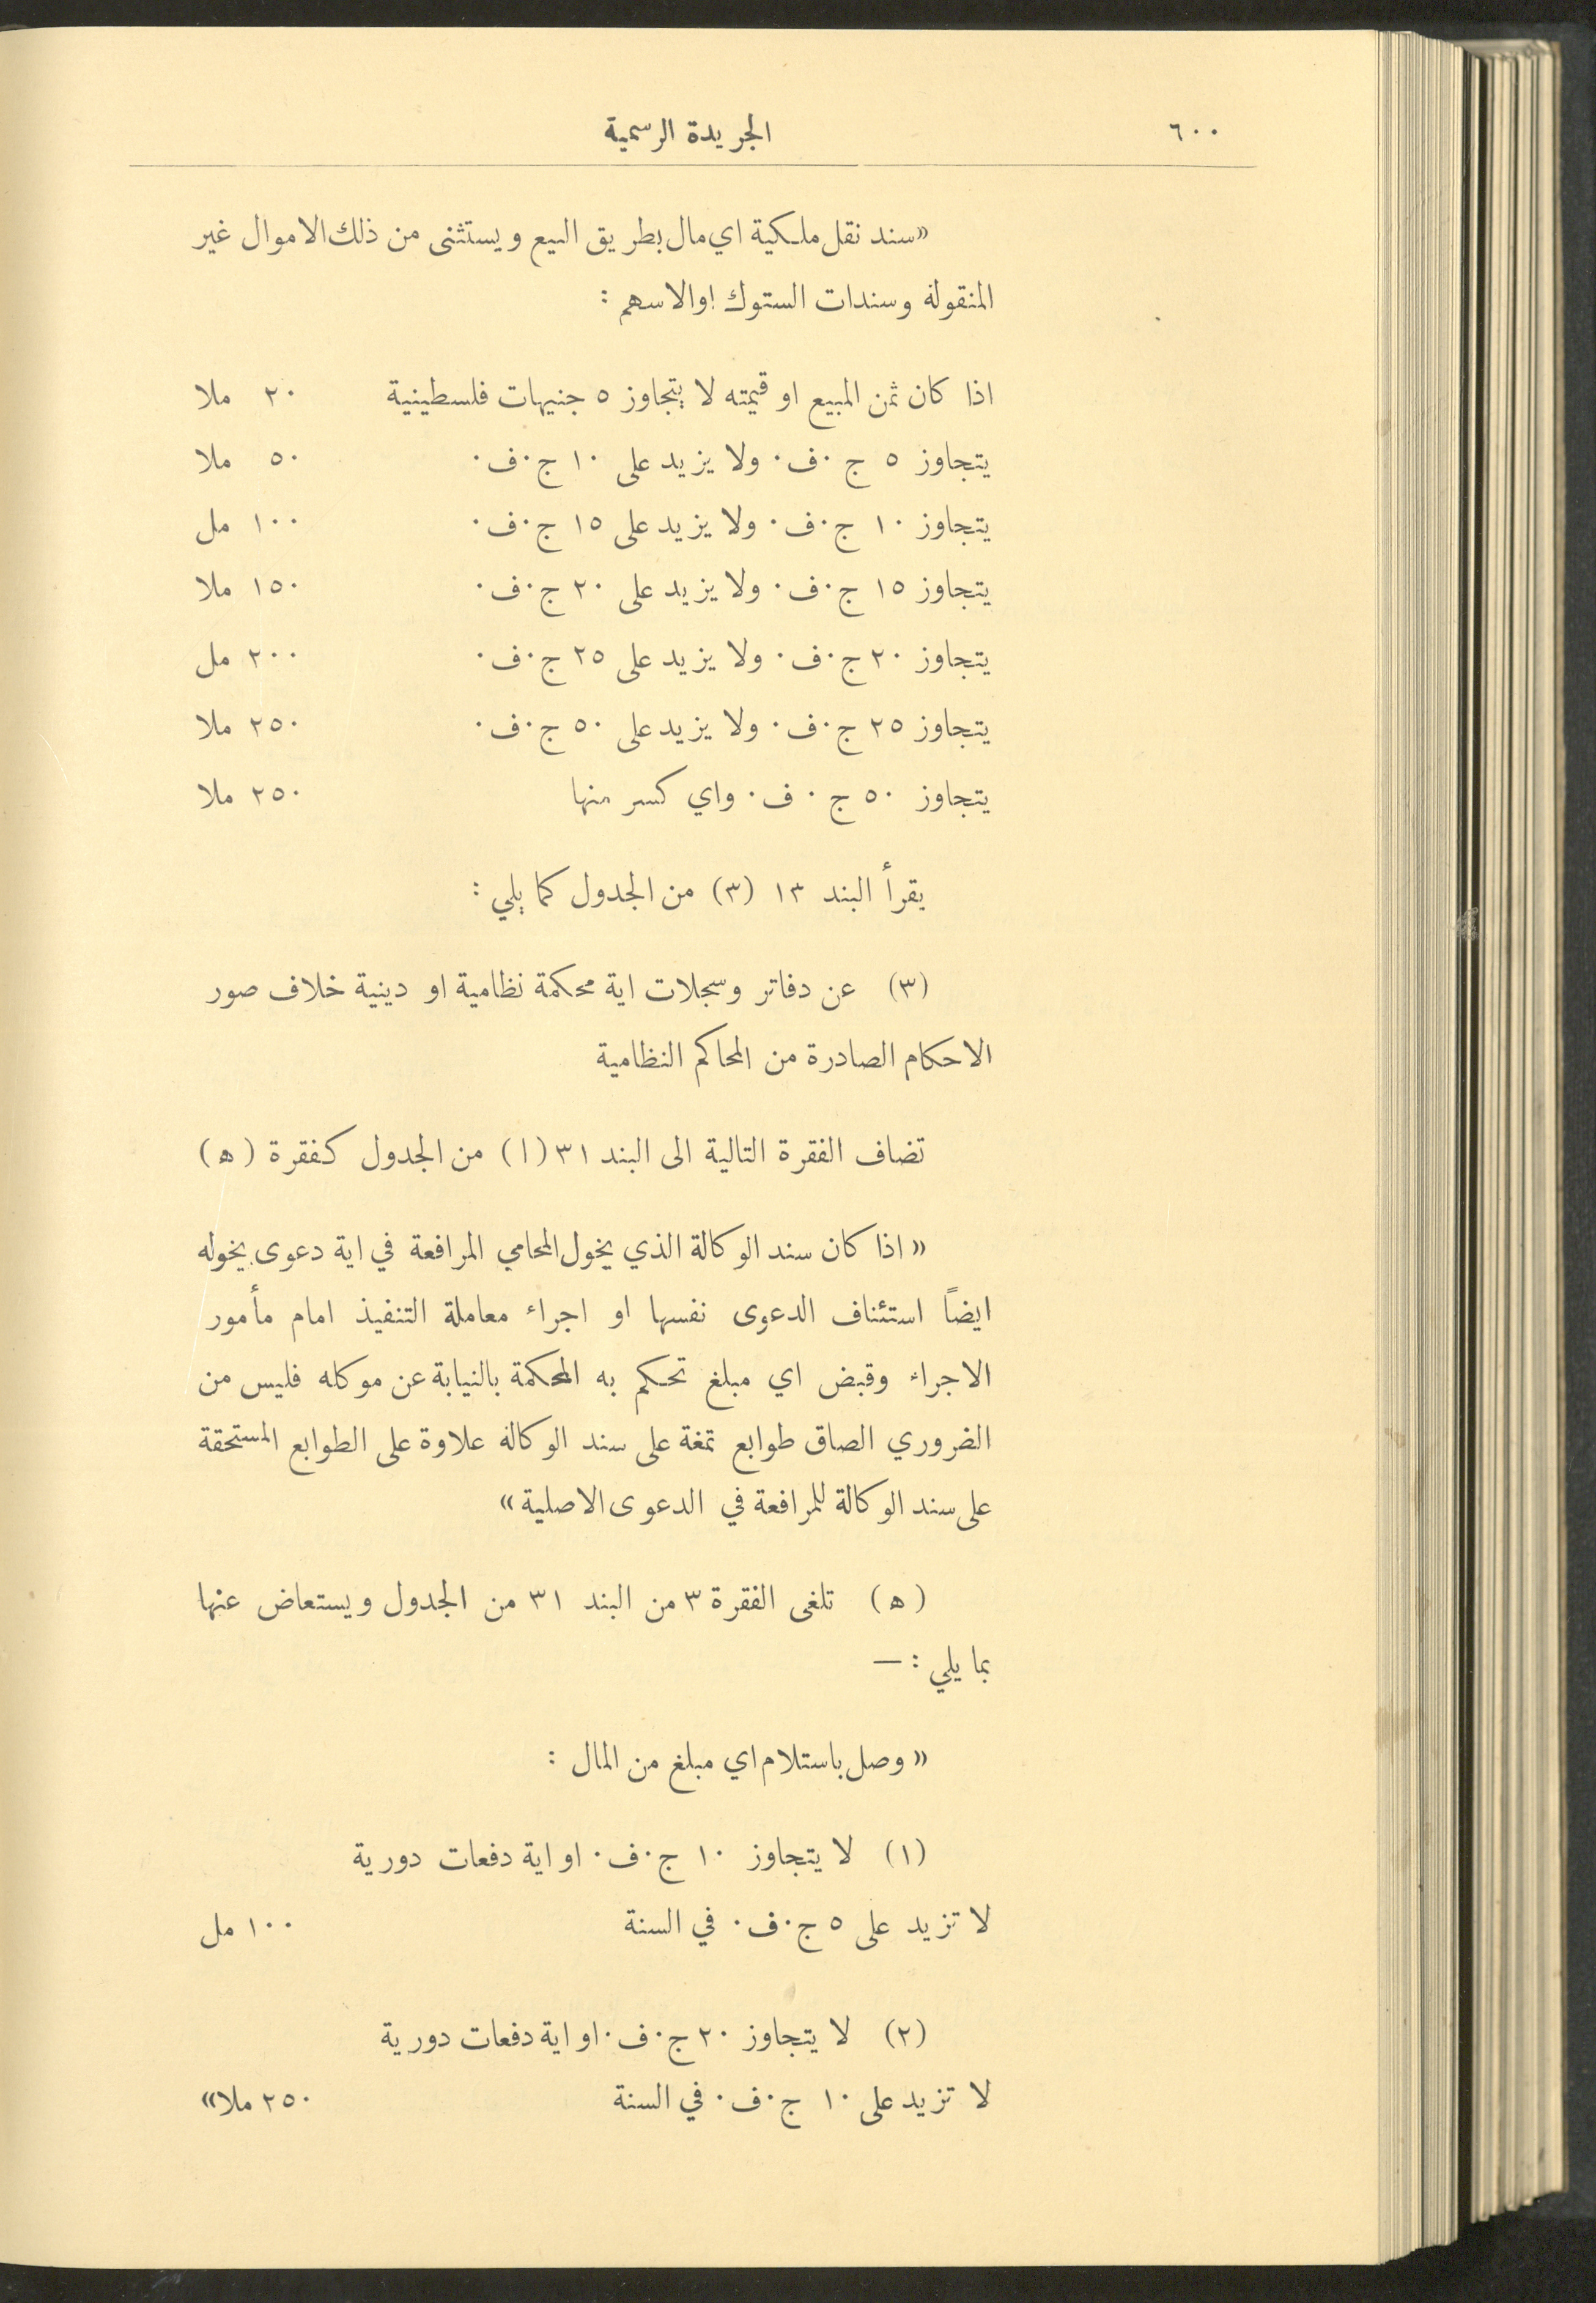 ٦٠٠ الجريدة الرسمية
«سند نقل ملكية اي مال بطريق البيع ويستثنى من ذلك الاموال غير
المنقولة وسندات الستوك او الاسهم :
اذا كان ثمن المبيع او قيمته لا يتجاوز ٥ جنيهات فلسطينية ٢٠ ملا
يتجاوز ٥ ج٠ف٠ ولا يزيد على ١٠ ج٠ف٠ ٥٠ ملا
يتجاوز ١٠ ج٠ف٠ ولا يزيد على ١٥ ج٠ف٠ ١٠٠ مل
يتجاوز ١٥ ج٠ف٠ ولا يزيد على ٢٠ ج٠ف٠ ١٥٠ ملا
يتجاوز ٢٠ ج٠ف٠ ولا يزيد على ٢٥ ج٠ف٠ ٢٠٠ مل
يتجاوز ٢٥ ج٠ف٠ ولا يزيد على ٥٠ ج٠ف٠ ٢٥٠ ملا
يتجاوز ٥٠ ج٠ف٠ واي كسر منها ٢٥٠ ملا
يقرأ البند ١٣ (٣) من الجدول كما يلي :
(٣) عن دفاتر وسجلات اية محكمة نظامية او دينية خلاف صور
الاحكام الصادرة من المحاكم النظامية
تضاف الفقرة التالية الى البند ٣١ (ا) من الجدول كفقرة (ه)
«اذا كان سند الوكالة الذي يخول المحامي المرافعة في اية دعوى يخوله
ايضاً استئناف الدعوى نفسها او اجراء معاملة التنفيذ امام مأمور
الاجراء وقبض اي مبلغ تحكم به المحكمة بالنيابة عن موكله فليس من
الضروري الصاق طوابع تمغة على سند الوكالة علاوة على الطوابع المستحقة
على سند الوكالة للمرافعة في الدعوى الاصلية»
(ه) تلغى الفقرة ٣ من البند ٣١ من الجدول ويستعاض عنها
بما يلي : —
«وصل باستلام اي مبلغ من المال :
(١) لا يتجاوز ١٠ ج٠ف٠ او اية دفعات دورية
لا تزيد على ٥ ج٠ف٠ في السنة ١٠٠ مل
(٢) لا يتجاوز ٢٠ ج٠ف٠ او اية دفعات دورية
لا تزيد على ١٠ ج٠ف٠ في السنة ٢٥٠ ملا»